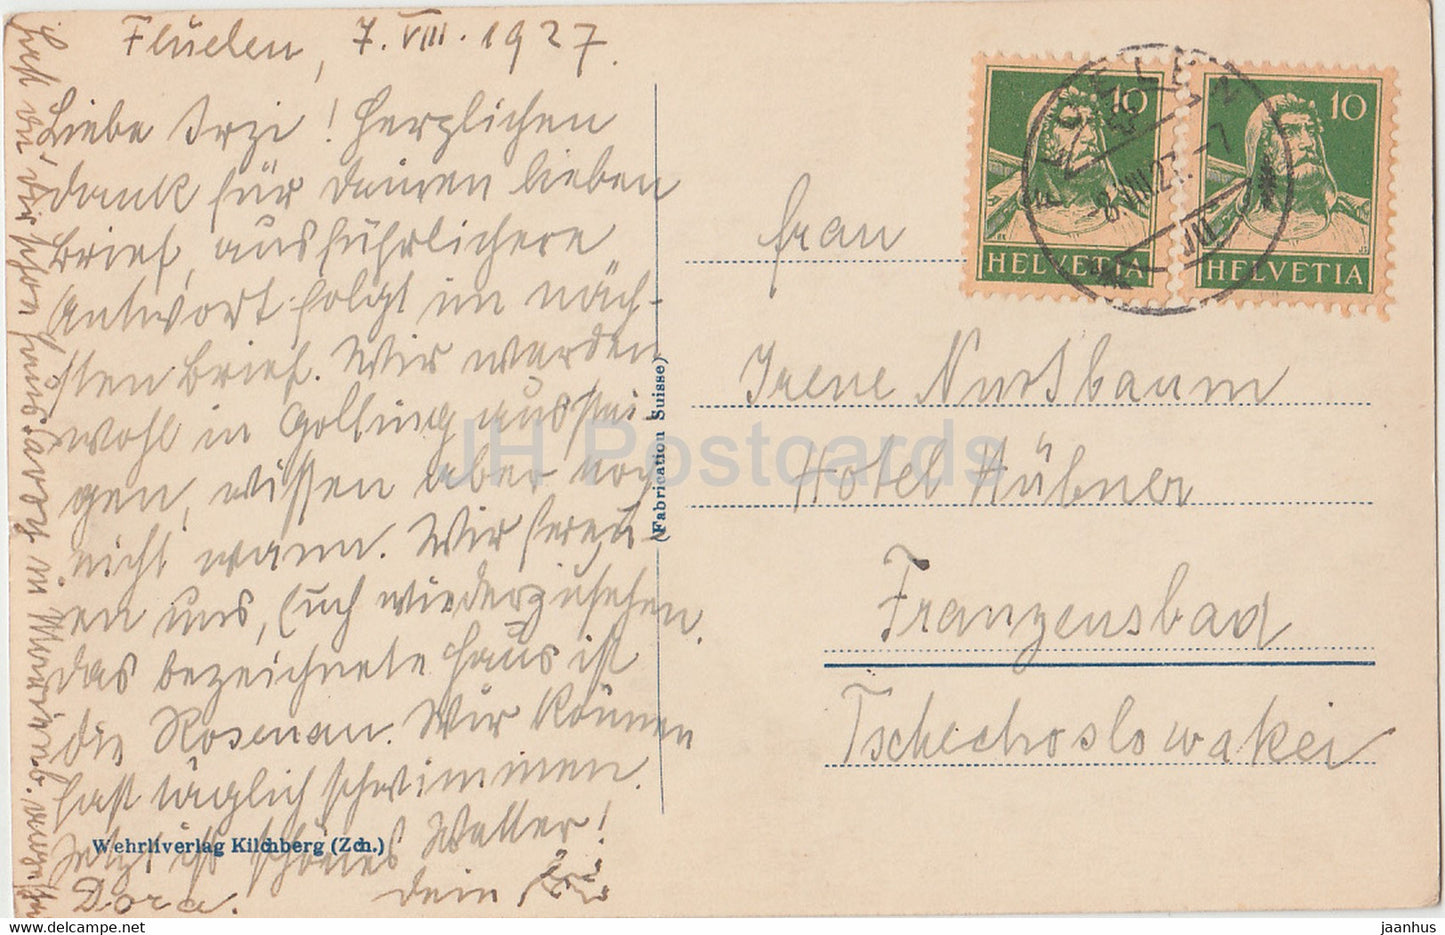 Flüelen, 7. VIII. 1927.
Liebe Irzi! Herzlichen
dank für Deinen lieben
Brief, ausführlichere
Antwort folgt im näch-
sten Brief. Wir werden
wohl in Golling ausstei-
gen, wissen aber noch
nicht wann. Wir freu-
en uns, Euch wiederzusehen.
das bezeichnete Haus ist
die Rosenau. Wir können
fast täglich schwimmen.
Jetzt ist schönes Wetter!
Dora. Dein
Hast Du Dir schon Hausarbeit in Marienb.
Wehrliverlag Kilchberg (Zch.)
(Fabrication Suisse)
10
HELVETIA
10
HELVETIA
FLUELEN
-8.VIII.27.-7
Frau
Irene Nussbaum
Hotel Hübner
Franzensbad
Tschechoslowakei
JH Postcards
www.hippostcard.com
jaanhus